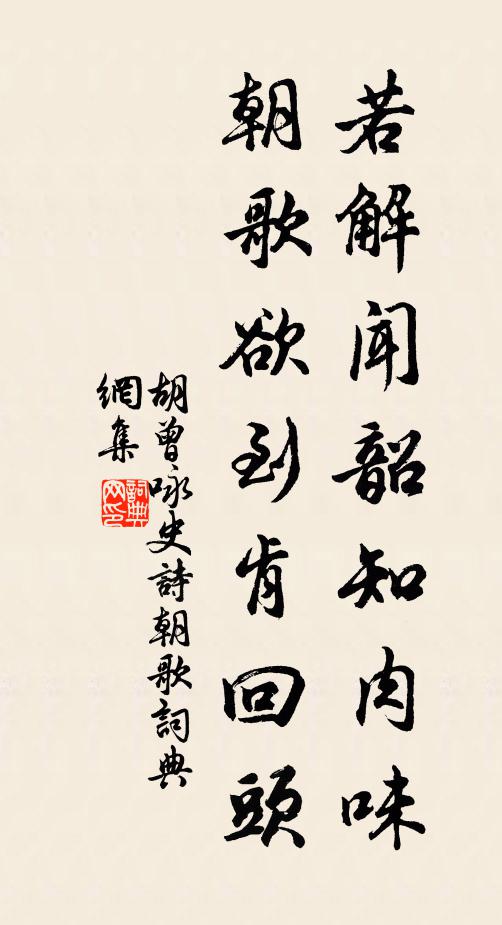 若解聞韶知肉味
朝歌欲到肯回頭
胡曾咏史詩朝歌詞典
網集
詞典
网印